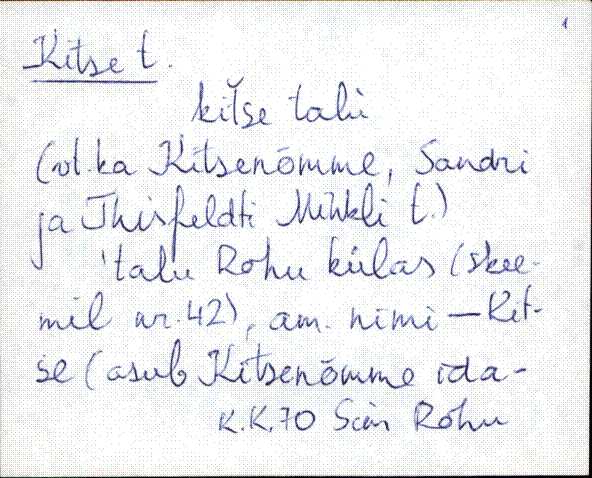 1
Kitse t.
kit̆se talu
(vt.ka Kitsenõmme, Sandri
ja Thisfeldti Mihkli t.)
'talu Rohu külas (skee-
mil nr.42), am. nimi — Kit-
se (asub Kitsenõmme ida-
K.K.70 Rohu